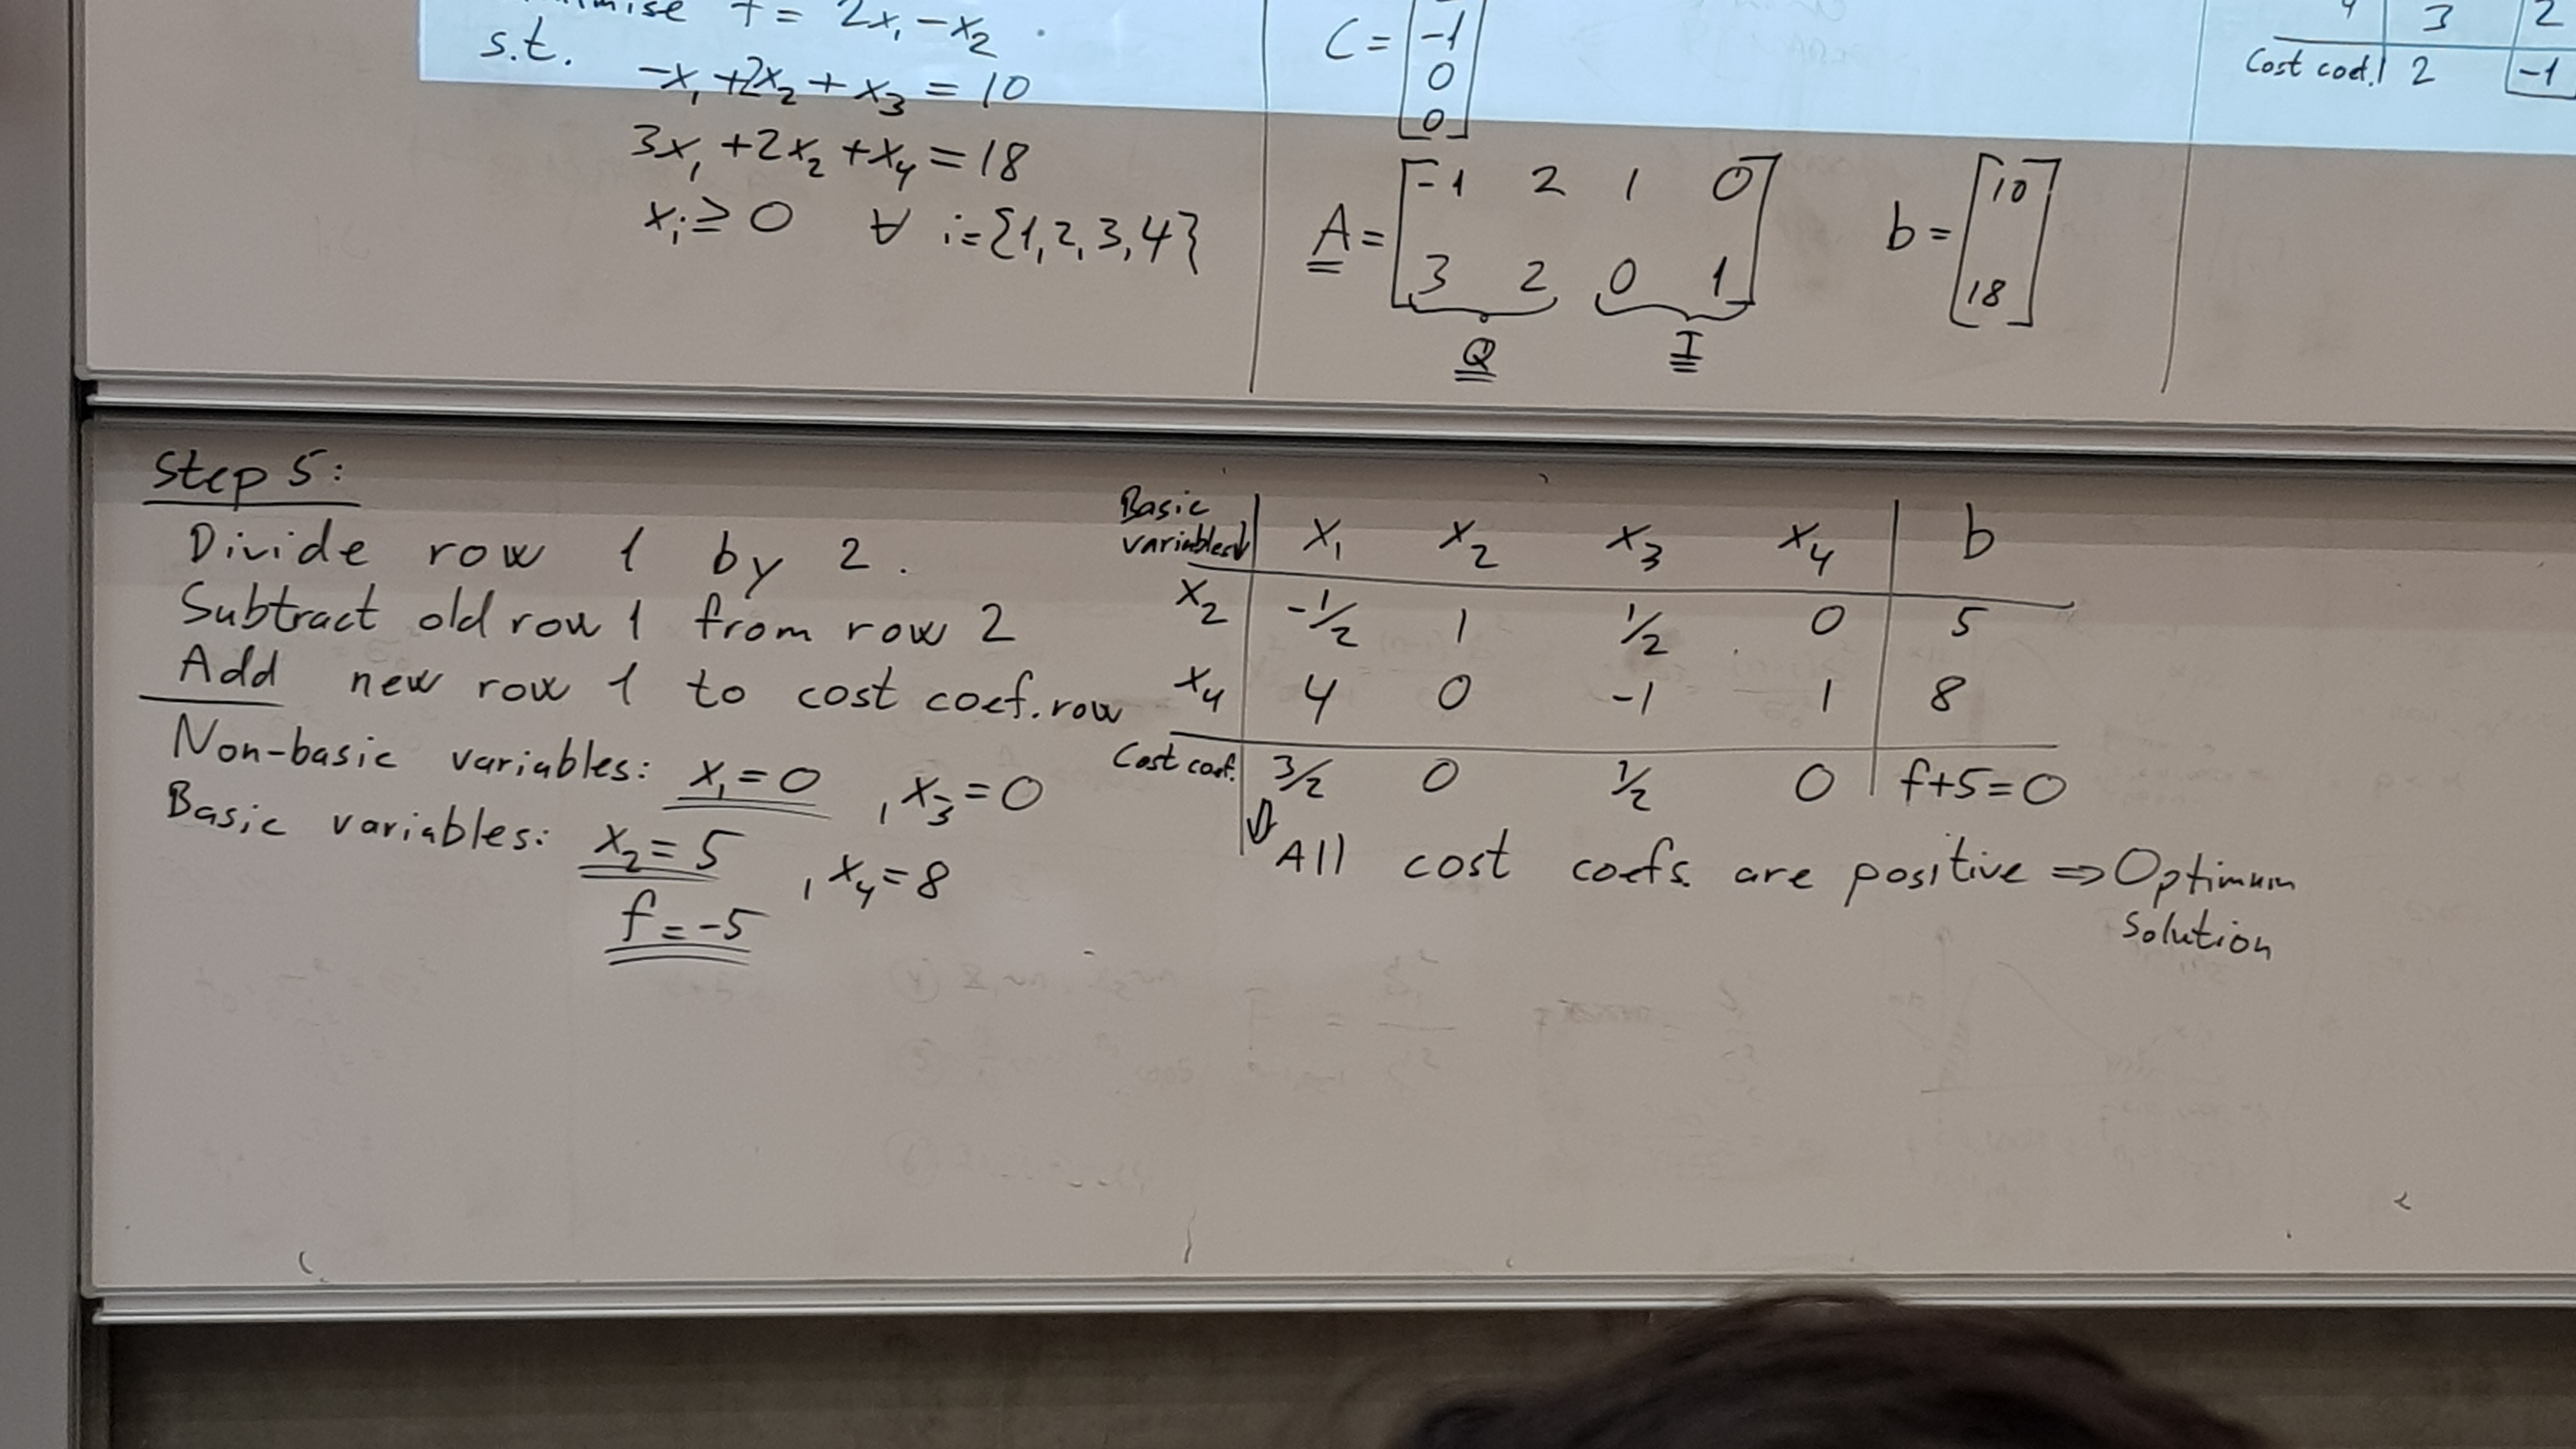 f = 2x₁ - x₂
s.t.
-x₁ + 2x₂ + x₃ = 10
3x₁ + 2x₂ + x₄ = 18
xᵢ ≥ 0 ∀ i = {1, 2, 3, 4}
C = [-1
0
0]
A = [-1 2 1 0
3 2 0 1]
Q I
b = [10
18]
3 2
Cost coef. 2 -1
Step 5:
Divide row 1 by 2.
Subtract old row 1 from row 2
Add new row 1 to cost coef. row
Non-basic variables: x₁ = 0, x₃ = 0
Basic variables: x₂ = 5, x₄ = 8
f = -5
Basic
variables↓ x₁ x₂ x₃ x₄ b
x₂ -1/2 1 1/2 0 5
x₄ 4 0 -1 1 8
Cost coef. 3/2 0 1/2 0 f+5=0
⇓ All cost coefs. are positive ⇒ Optimum
Solution